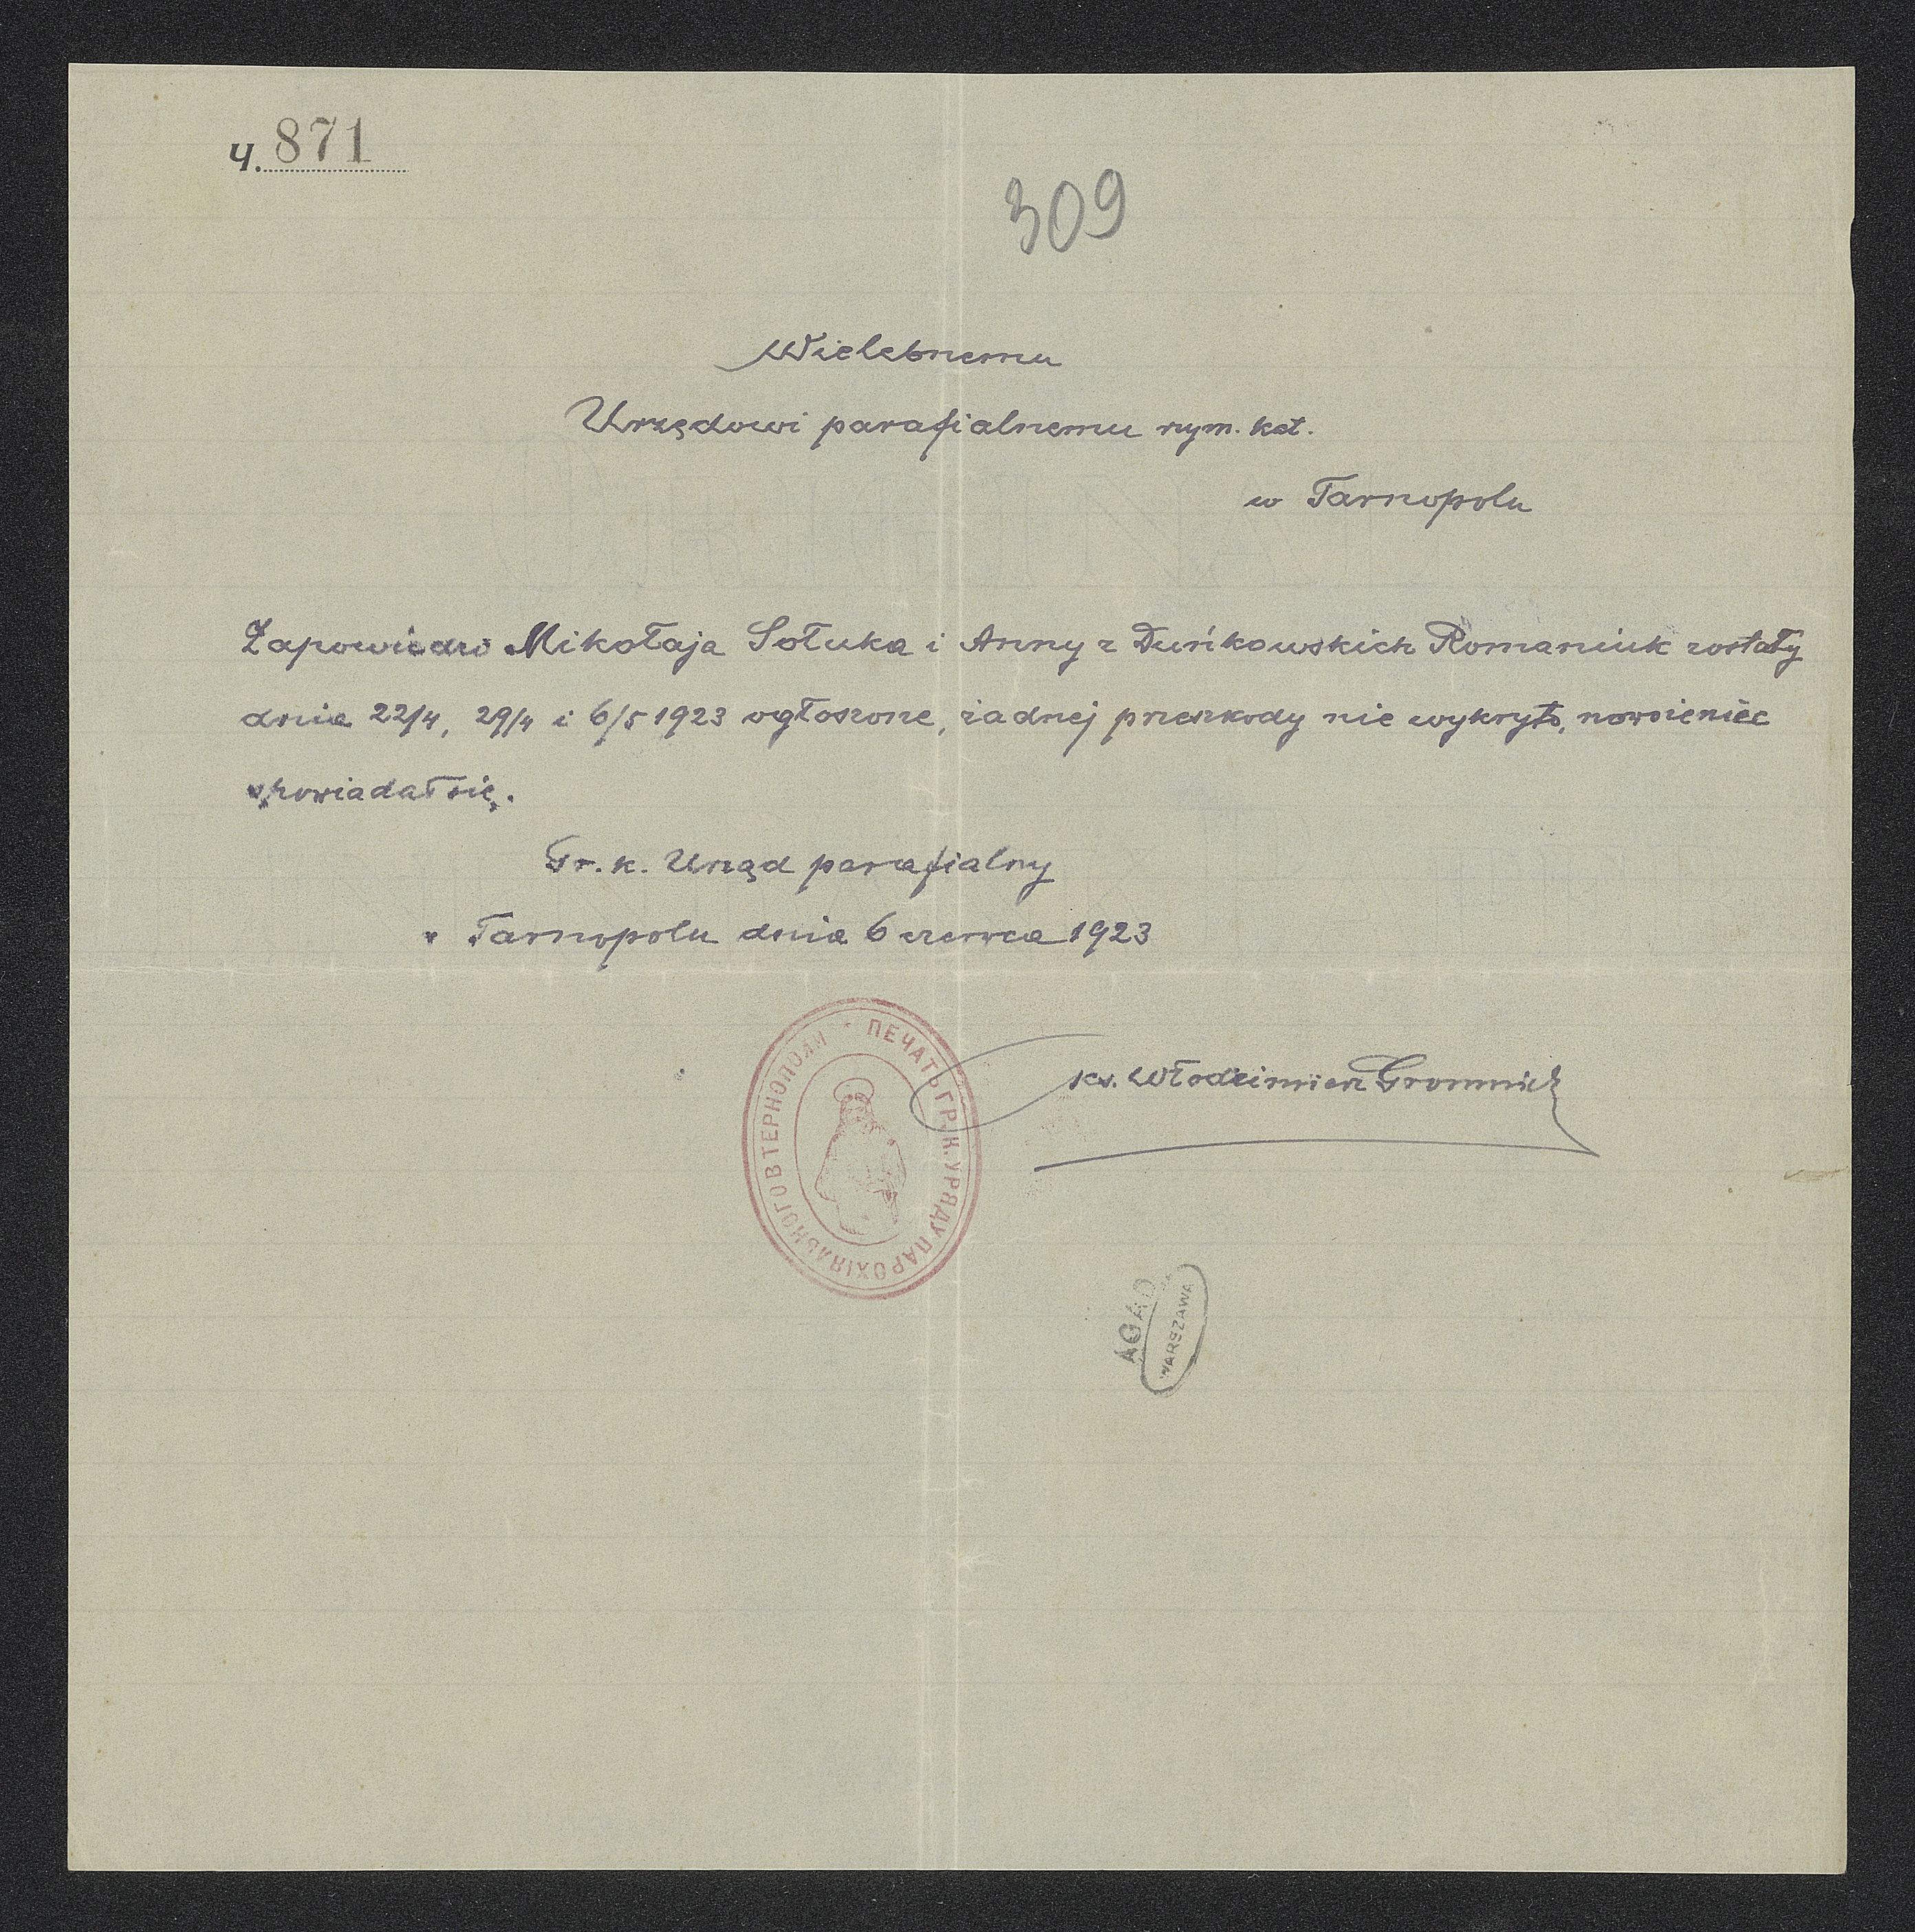 Ч. 871
309
Wielebnemu
Urzędowi parafialnemu rzym. kat.
w Tarnopolu
Zapowiedzi Mikołaja Sołuka i Anny z Duńkowskich Romaniuk zostały
dnia 22/4, 29/4 i 6/5 1923 ogłoszone, żadnej przeszkody nie wykryto, narzeniec
spowiadał się.
Gr. k. Urząd parafialny
w Tarnopolu dnia 6 czerwca 1923
ПЕЧАТЬ ГР. К. УРЯДУ ПАРОХІЯЛЬНОГО В ТЕРНОПОЛИ
ks. Włodzimierz Gromnicki
AGAD
WARSZAWA